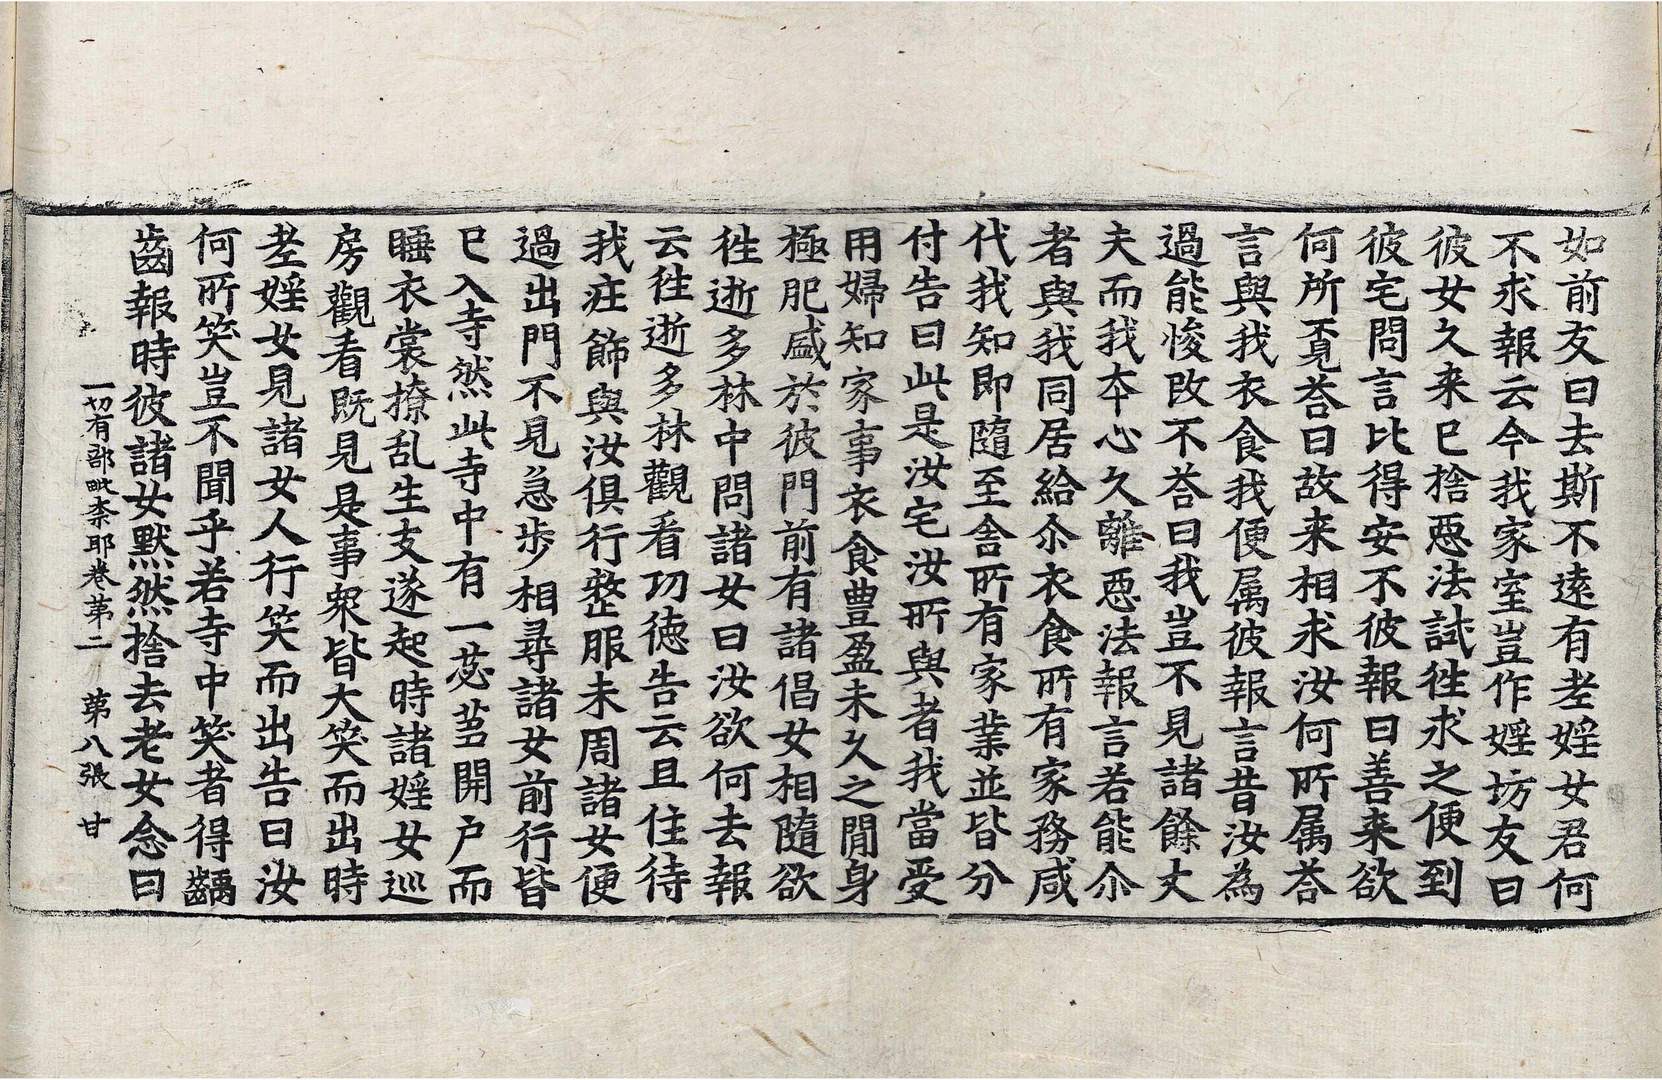 如前友曰去斯不遠有老婬女君何
不求報云今我家室豈作婬坊友曰
彼女久来已捨惡法試往求之便到
彼宅問言比得安不彼報曰善来欲
何所覓荅曰故来相求汝何所属荅
言與我衣食我便属彼報言昔汝為
過能悛改不荅曰我豈不見諸餘丈
夫而我本心久離惡法報言若能尒
者與我同居給尒衣食所有家務咸
代我知即隨至舎所有家業並皆分
付告曰此是汝宅汝所與者我當受
用婦知家事衣食豊盈未久之間身
極肥盛於彼門前有諸倡女相隨欲
往逝多林中問諸女曰汝欲何去報
云往逝多林觀看功徳告云且住待
我庄飾與汝俱行整服未周諸女便
過出門不見急歩相尋諸女前行皆
已入寺然此寺中有一苾蒭開户而
睡衣裳撩乱生支遂起時諸婬女巡
房觀看既見是事衆皆大笑而出時
老婬女見諸女人行笑而出告曰汝
何所笑豈不聞乎若寺中笑者得齲
齒報時彼諸女默然捨去老女念曰
一切有部毗柰耶卷第二 第八張 甘